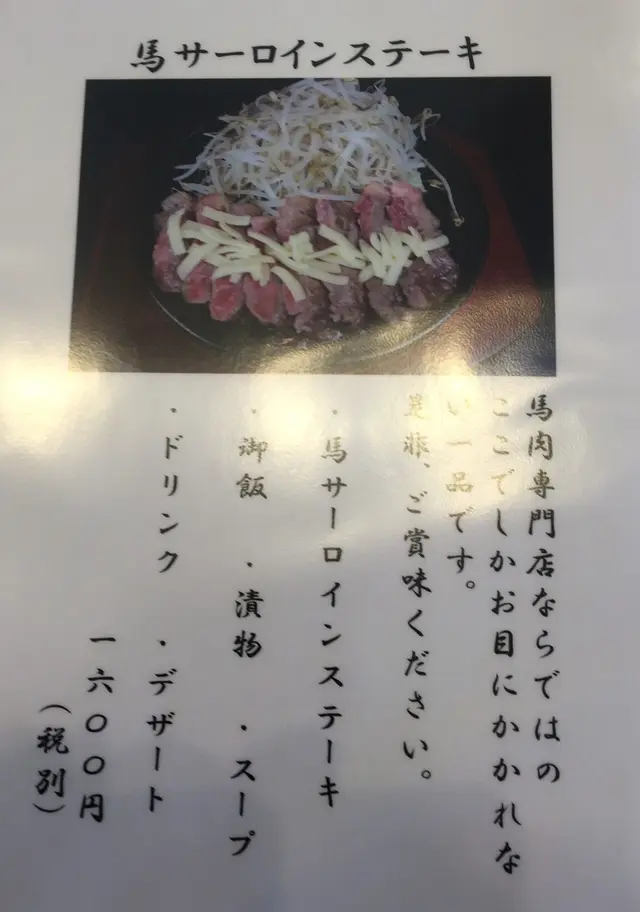 馬サーロインステーキ
馬肉専門店ならではの
ここでしかお目にかかれな
い一品です。
是非、ご賞味ください。
・馬サーロインステーキ
・御飯 ・漬物 ・スープ
・ドリンク ・デザート
一六〇〇円
（税別）